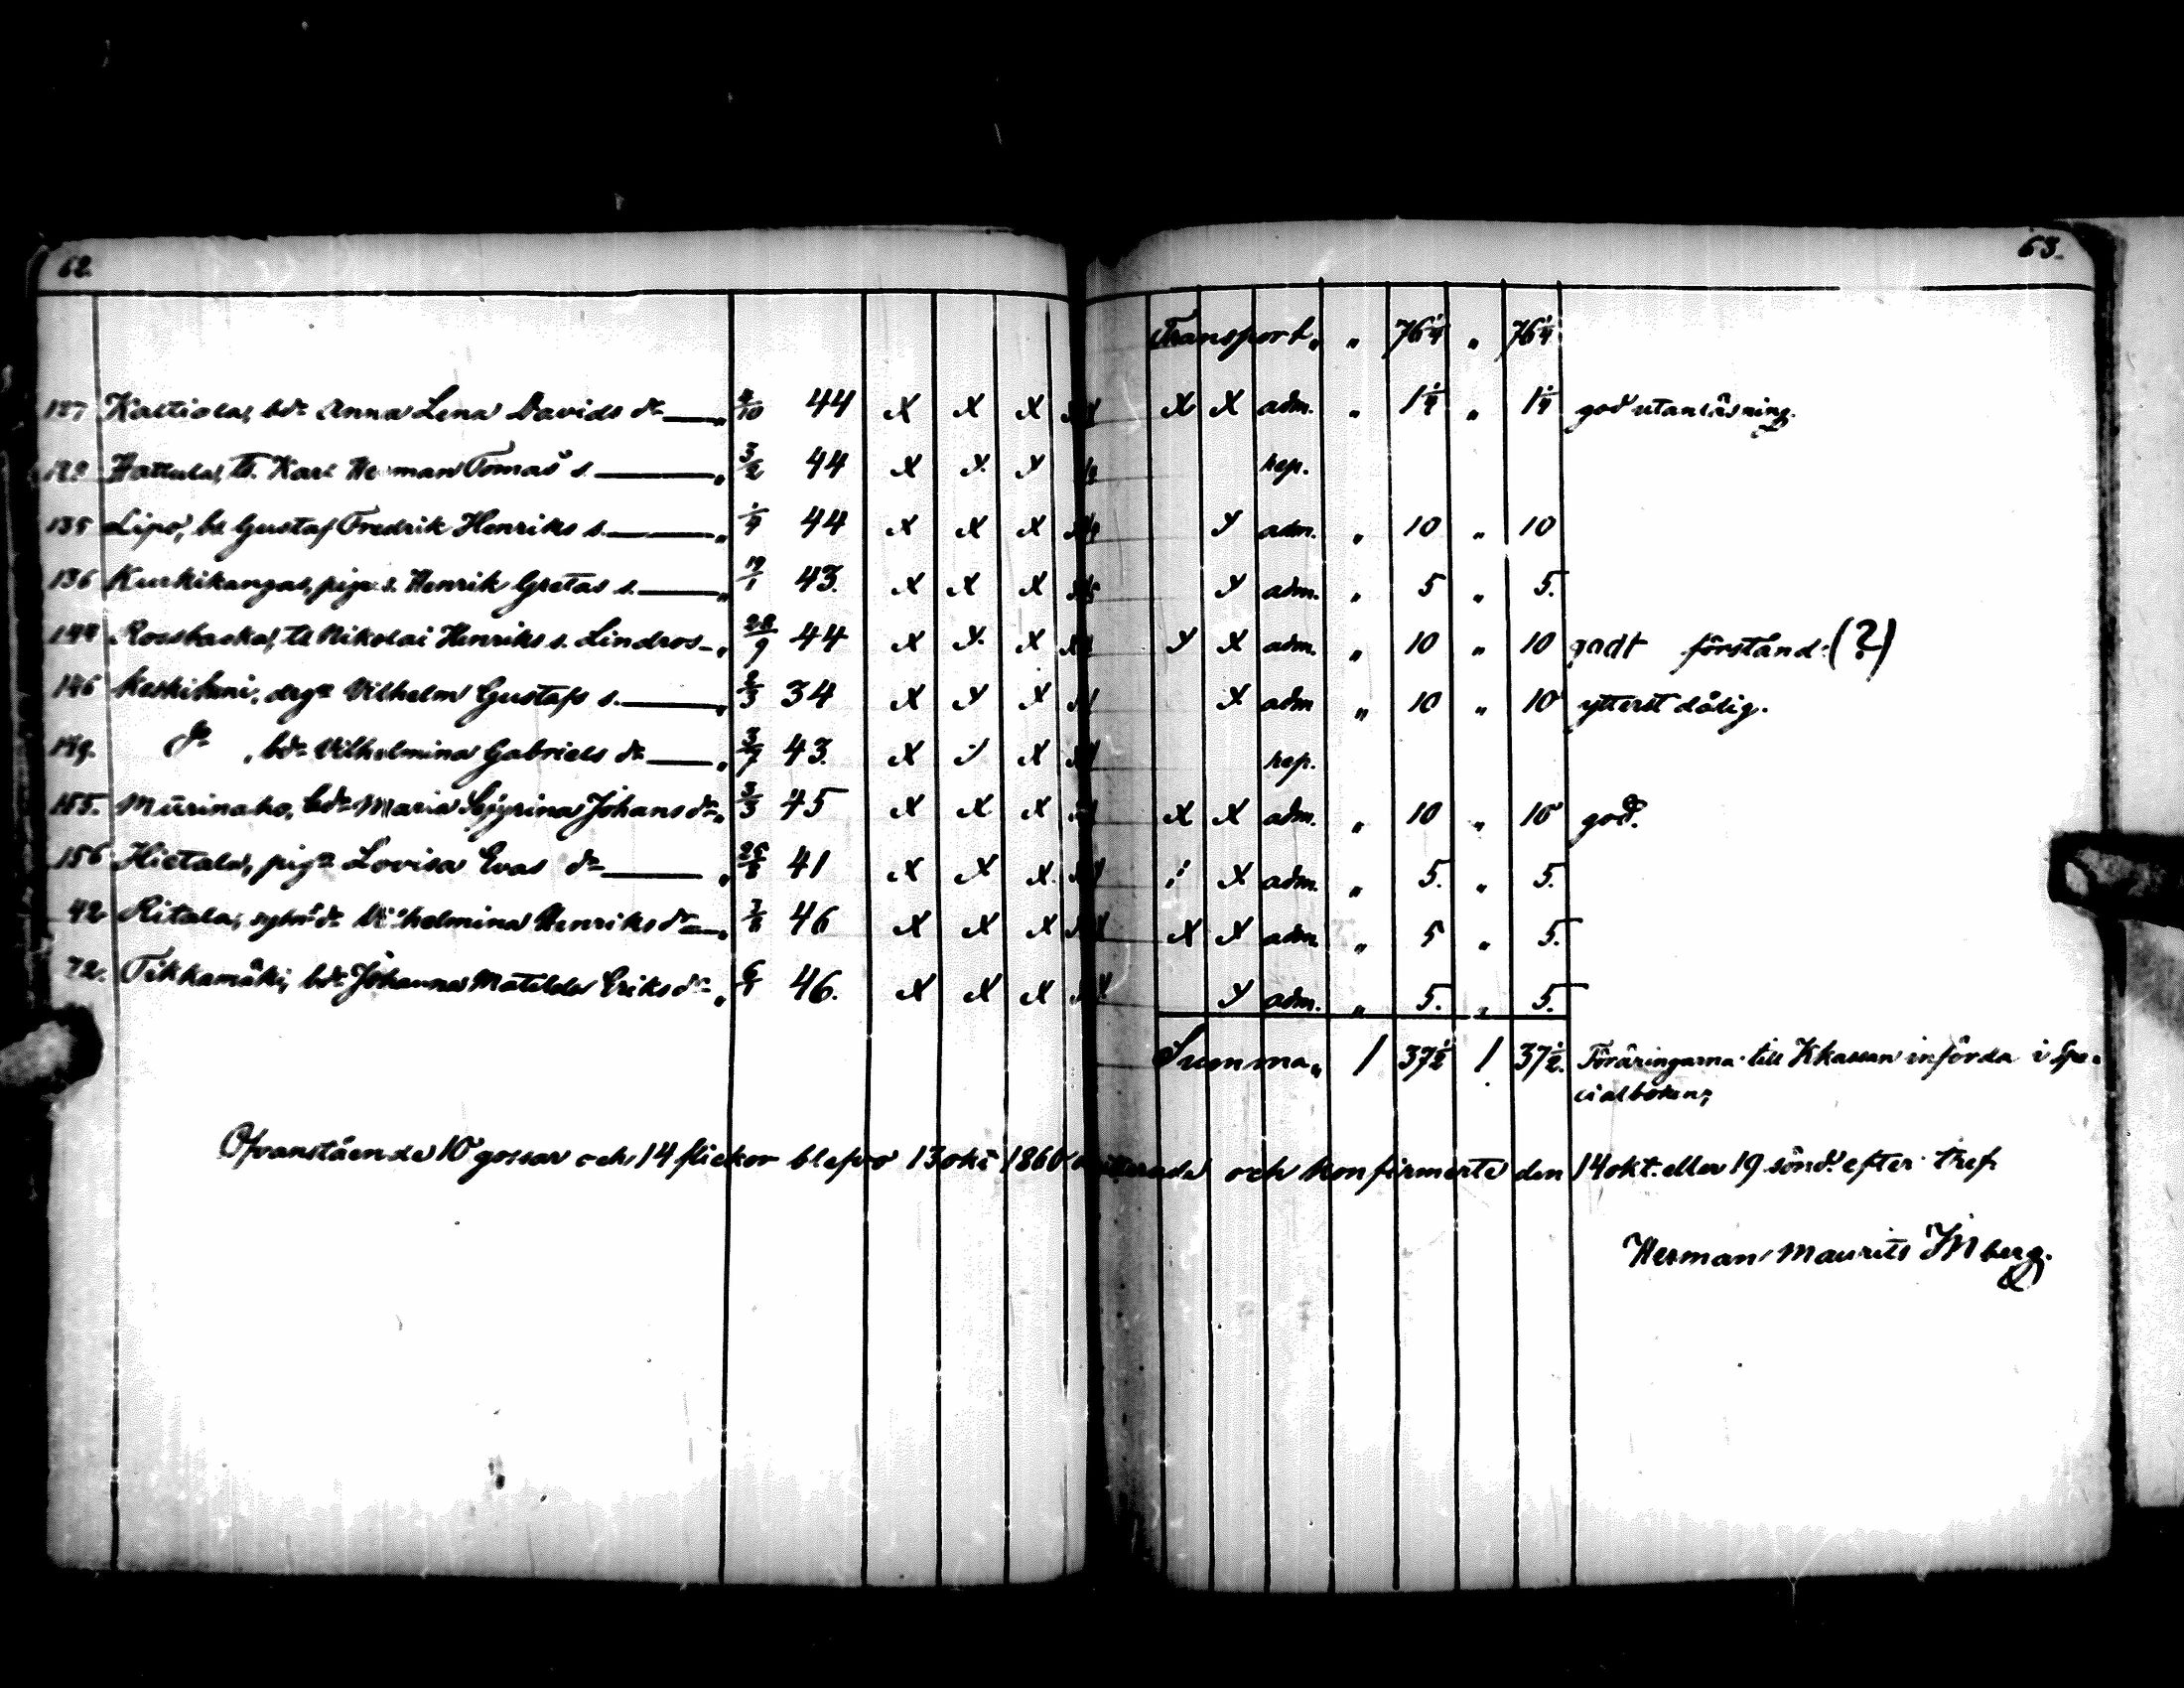 62.
63.
Transport „ „ 76 1/4 „ 76 1/4
127 Kaltiola, bdr Anna Lena Davids dr „ 4/10 44 X X X X X adm. „ 1 1/4 „ 1 1/4 god utanläsning.
Hattula, tl. Karl Herman Tomas s. „ 3/2 44 X X X rep.
135 Lipo, bs Gustaf Fredrik Henriks s. „ 1/4 44 X X X X adm. „ 10 „ 10
136 Kurkikangas, pigs. Henrik Gretas s. „ 19/1 43. X X X X adm. „ 5 „ 5.
144 Rossbacka, tl Nikolai Henriks s. Lindros „ 28/9 44 X X X X X adm. „ 10 „ 10 godt förstånd. (?)
146 Keskikuni, drgn Vilhelm Gustafs s. „ 2/3 34 X X X X adm „ 10 „ 10 ytterst dålig.
149. do , bdr Vilhelmina Gabriels dr „ 3/7 43. X X X rep.
155. Murinaho, bdr Maria Sefyrina Johans dr „ 3/3 45 X X X X X adm. „ 10 „ 10 god.
156 Hietala, pigs Lovisa Evas dr „ 25/8 41 X X X. X adm. „ 5. „ 5.
42 Ritala, sytn dr Vilhelmina Henriks dr „ 7/8 46 X X X X X adm. „ 5 „ 5.
72. Tikkamäki, bdr Johanna Matilda Eriks dr „ 6/4 46. X X X X adm. „ 5. „ 5.
Summa „ 1 37 1/2 1 37 1/2. Föräringarna till Kkassan införda i Spe-
cialboken;
Ofvanstående 10 gossar och 14 flickor blefvo 13 okt 1860 och konfirmerte den 14 okt. eller 19 sönd. efter tref.
Herman Maurits Inberg.